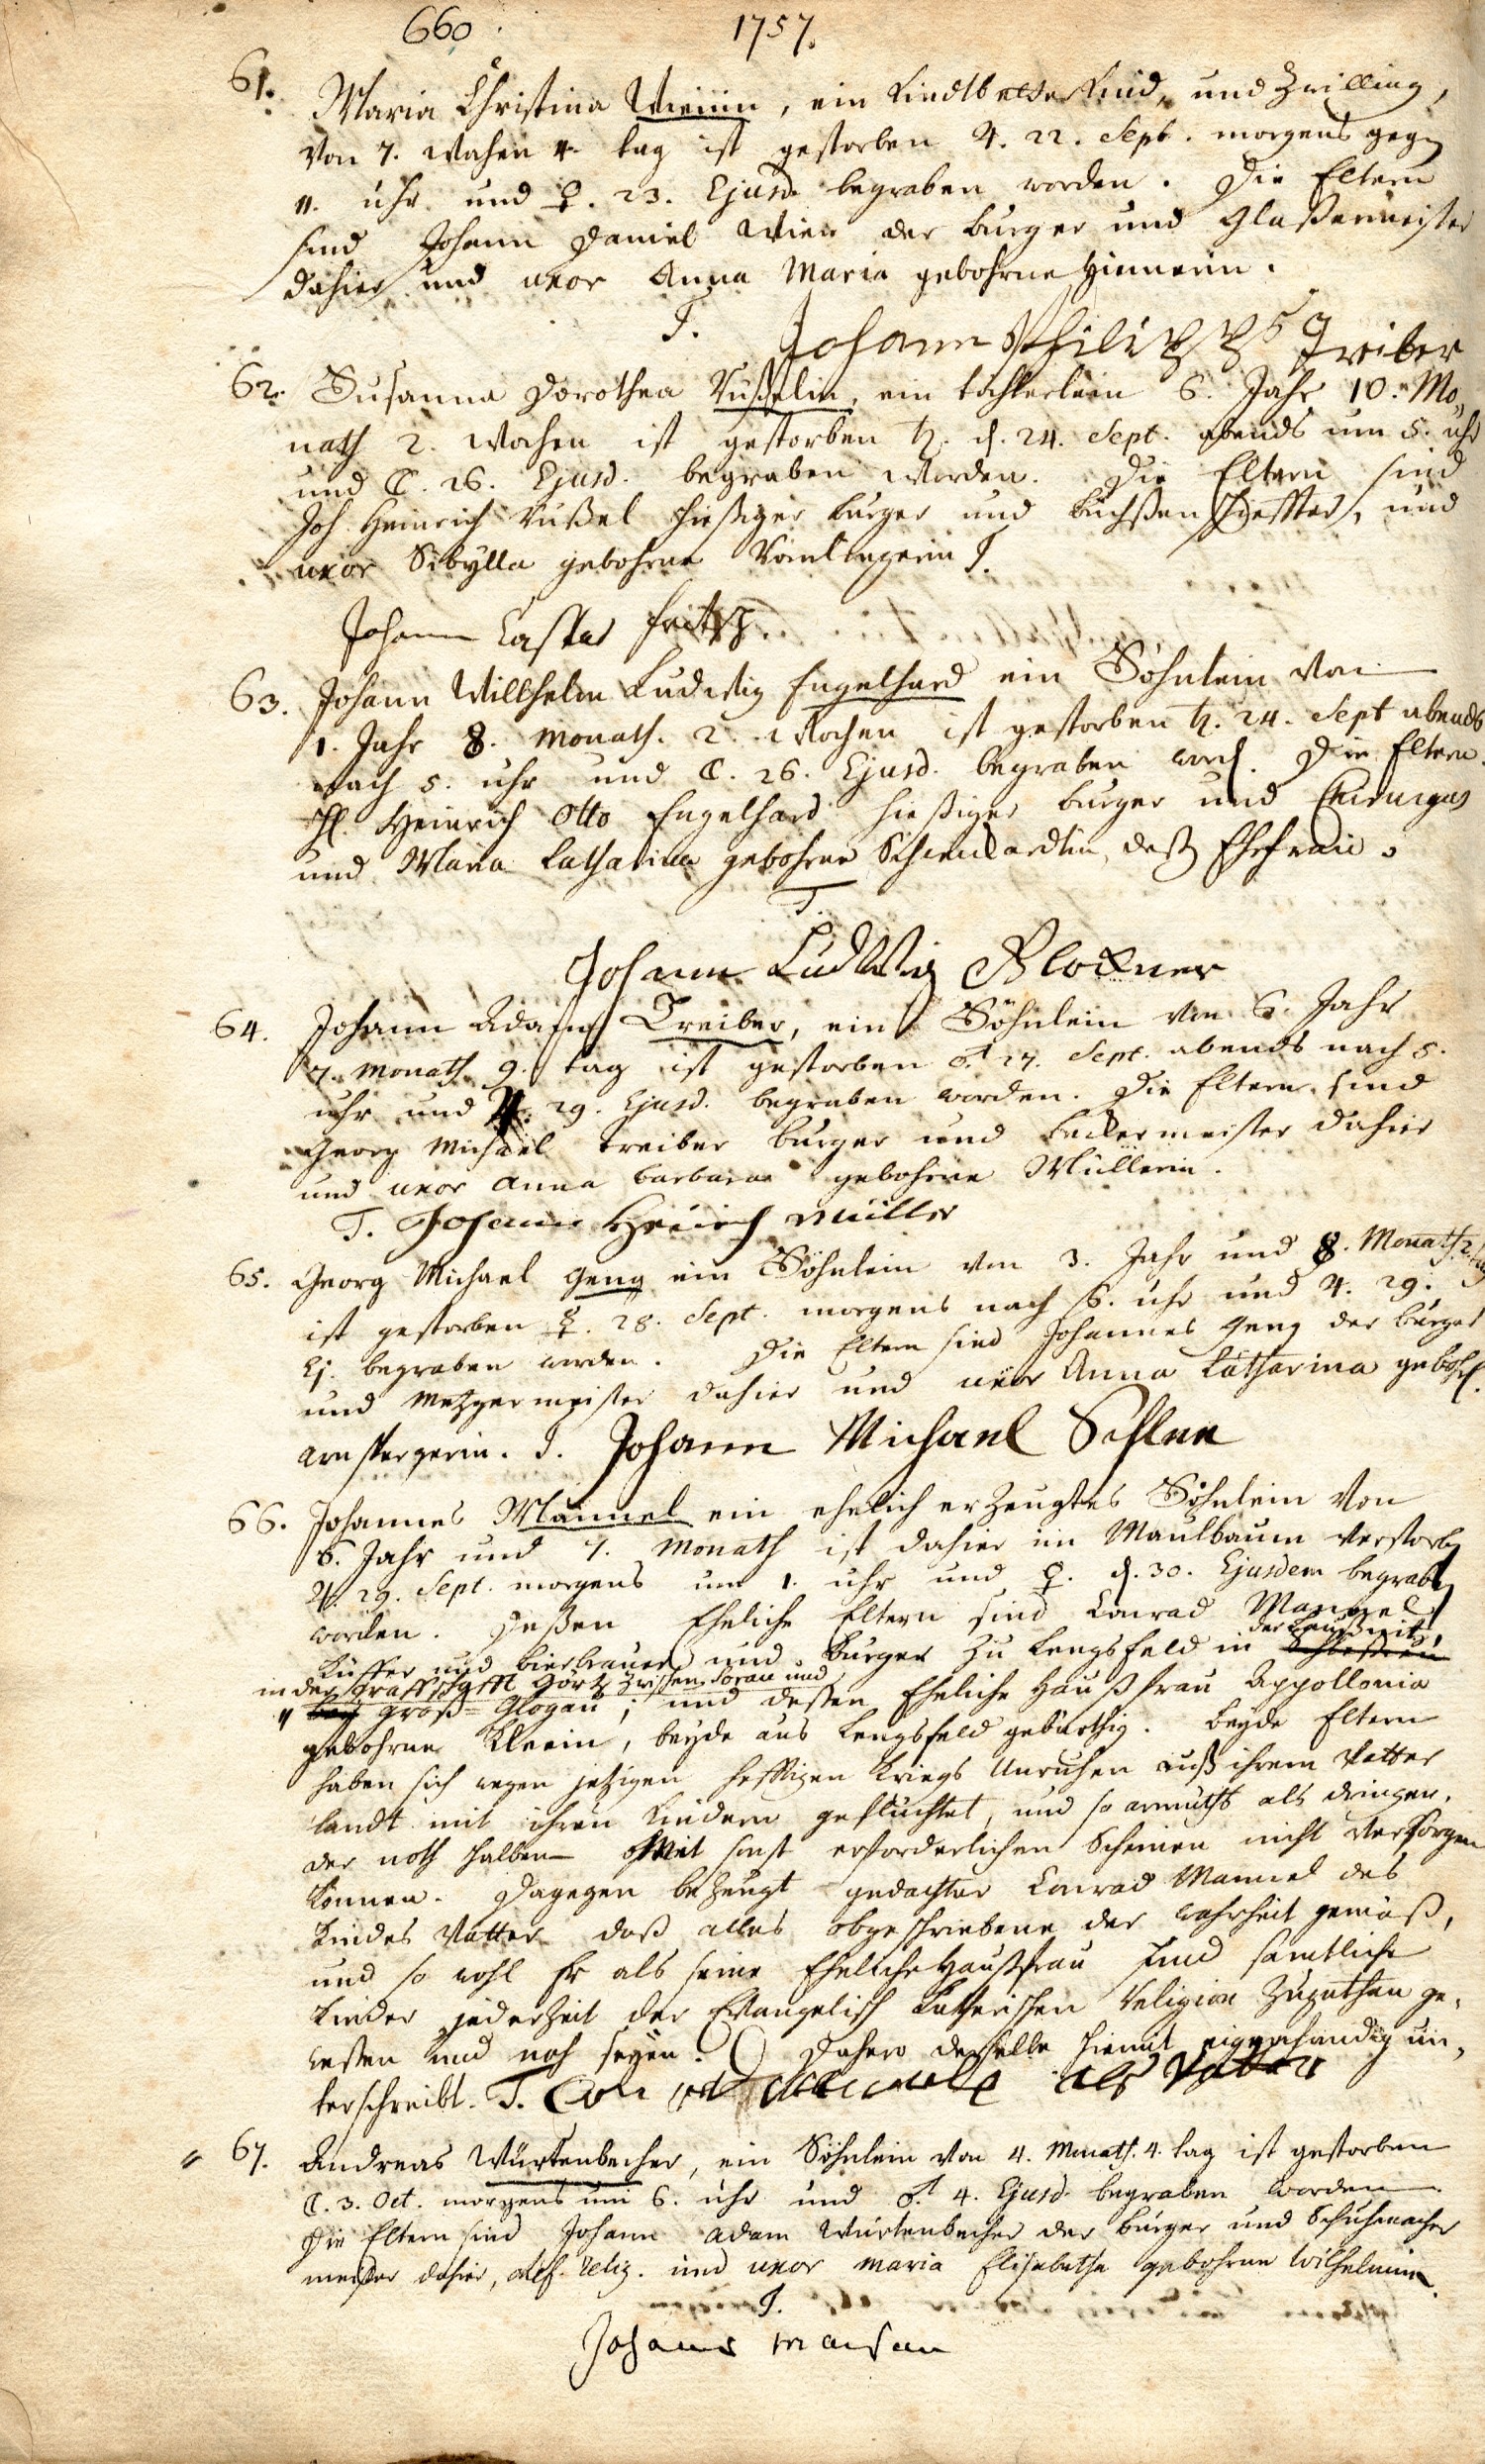 660. 1757.
61. Maria Christina Wienin, ein Kindtbetter Kind, und Zwilling,
von 7. Wochen 4. tag ist gestorben ♃. 22. Sept. morgens gegen
11. uhr und ♀. 23. Ejusd. begraben worden. Die Eltern
sind Johann Daniel Wien der burger und Glaßermeister
dahier und uxor Anna Maria gebohrne
T. Johann Philipps Treiber
62. Susanna Dorothea Rußelin, ein töchterlein 6. Jahr 10. Mo„
nath 2. Wochen ist gestorben ♄. d. 24. Sept. abends um 5. uhr
und ☾. 26. Ejusd. begraben worden. Die Eltern sind
Joh. Heinrich Rußel hießiger burger und büchsen Schiffter, und
uxor Sibÿlla gebohrne T.
Johann Caspar Fritsch
63. Johann Willhelm Ludwig Engelhard ein Söhnlein von
1. Jahr 8. Monath. 2. Wochen ist gestorben ♄. 24. Sept abends
nach 5. uhr und ☾. 26. Ejusd. begraben word. Die Eltern
H. Heinrich Otto Engelhard hießiger burger und Chirurgus
und Maria Catharina gebohrne deß Ehefrau.
T.
Johann Ludwig Blockner
64. Johann Adam Treiber, ein Söhnlein von 6. Jahr
7. Monath 9. tag ist gestorben ♂. 27. Sept. abends nach 5.
uhr und ♃. 29. Ejusd. begraben worden. Die Eltern sind
Georg Michael Treiber burger und beckermeister dahier
und uxor Anna barbara gebohrne Müllerin.
T. Johann Henrich Müller
65. Georg Michael Geng ein Söhnlein von 3. Jahr und 8. Monath 2. tag
ist gestorben ☿. 28. Sept. morgens nach 6. uhr und ♃. 29.
Ej. begraben worden. Die Eltern sind Johannes Geng der burger
und Metzgermeister dahier und uxor Anna Catharina gebohrn.
Arnspergerin. T. Johann Michael
66. Johannes Mannel ein ehelich erzeugtes Söhnlein von
6. Jahr und 7. Monath ist dahier im Maulbaum verstorben
♃. 29. Sept. morgens um 1. uhr und ♀. d. 30. Ejusdem begraben
worden. Deßen Eheliche Eltern sind Conrad Mannel
Küffer und bierbrauer und burger zu Lengsfeld in der Laußnitz,
in der Graffschafft zwischen Sorau und
Groß-Glogau; und deßen Eheliche Haußfrau Appollonia
gebohrne Kleein, beyde aus Lengsfeld gebürthig. beyde Eltern
haben sich wegen jetzigen hefftigen Kriegs Unruhen auß ihrem Vatter
landt mit ihren Kindern geflüchtet, und so armuths als dringen,
der noth halben mit sonst erforderlichen Scheinen nicht versorgen
können. Dagegen bezeugt gedachter Conrad Mannel des
Kindes Vatter daß alles obgeschriebene der wahrheit gemäß,
und so wohl Er als seine Eheliche Haußfrau und sämtliche
Kinder jederzeit der Evangelisch Lutherischen Religion zugethan ge,
weßen und noch seyen. Dahero derselbe hiemit eigenhändig un,
terschreibt. T. als Vatter
67. Andreas Würtenbecher, ein Söhnlein von 4. Monath. 4. tag ist gestorben
☾. 3. Oct. morgens um 6. uhr und ♂. 4. Ejusd. begraben worden
Die Eltern sind Johann Adam Würtenbecher der burger und Schuhmacher
meister dahier, relig. und uxor Maria Elisabetha gebohrne Wilhelmin.
T.
Johanes